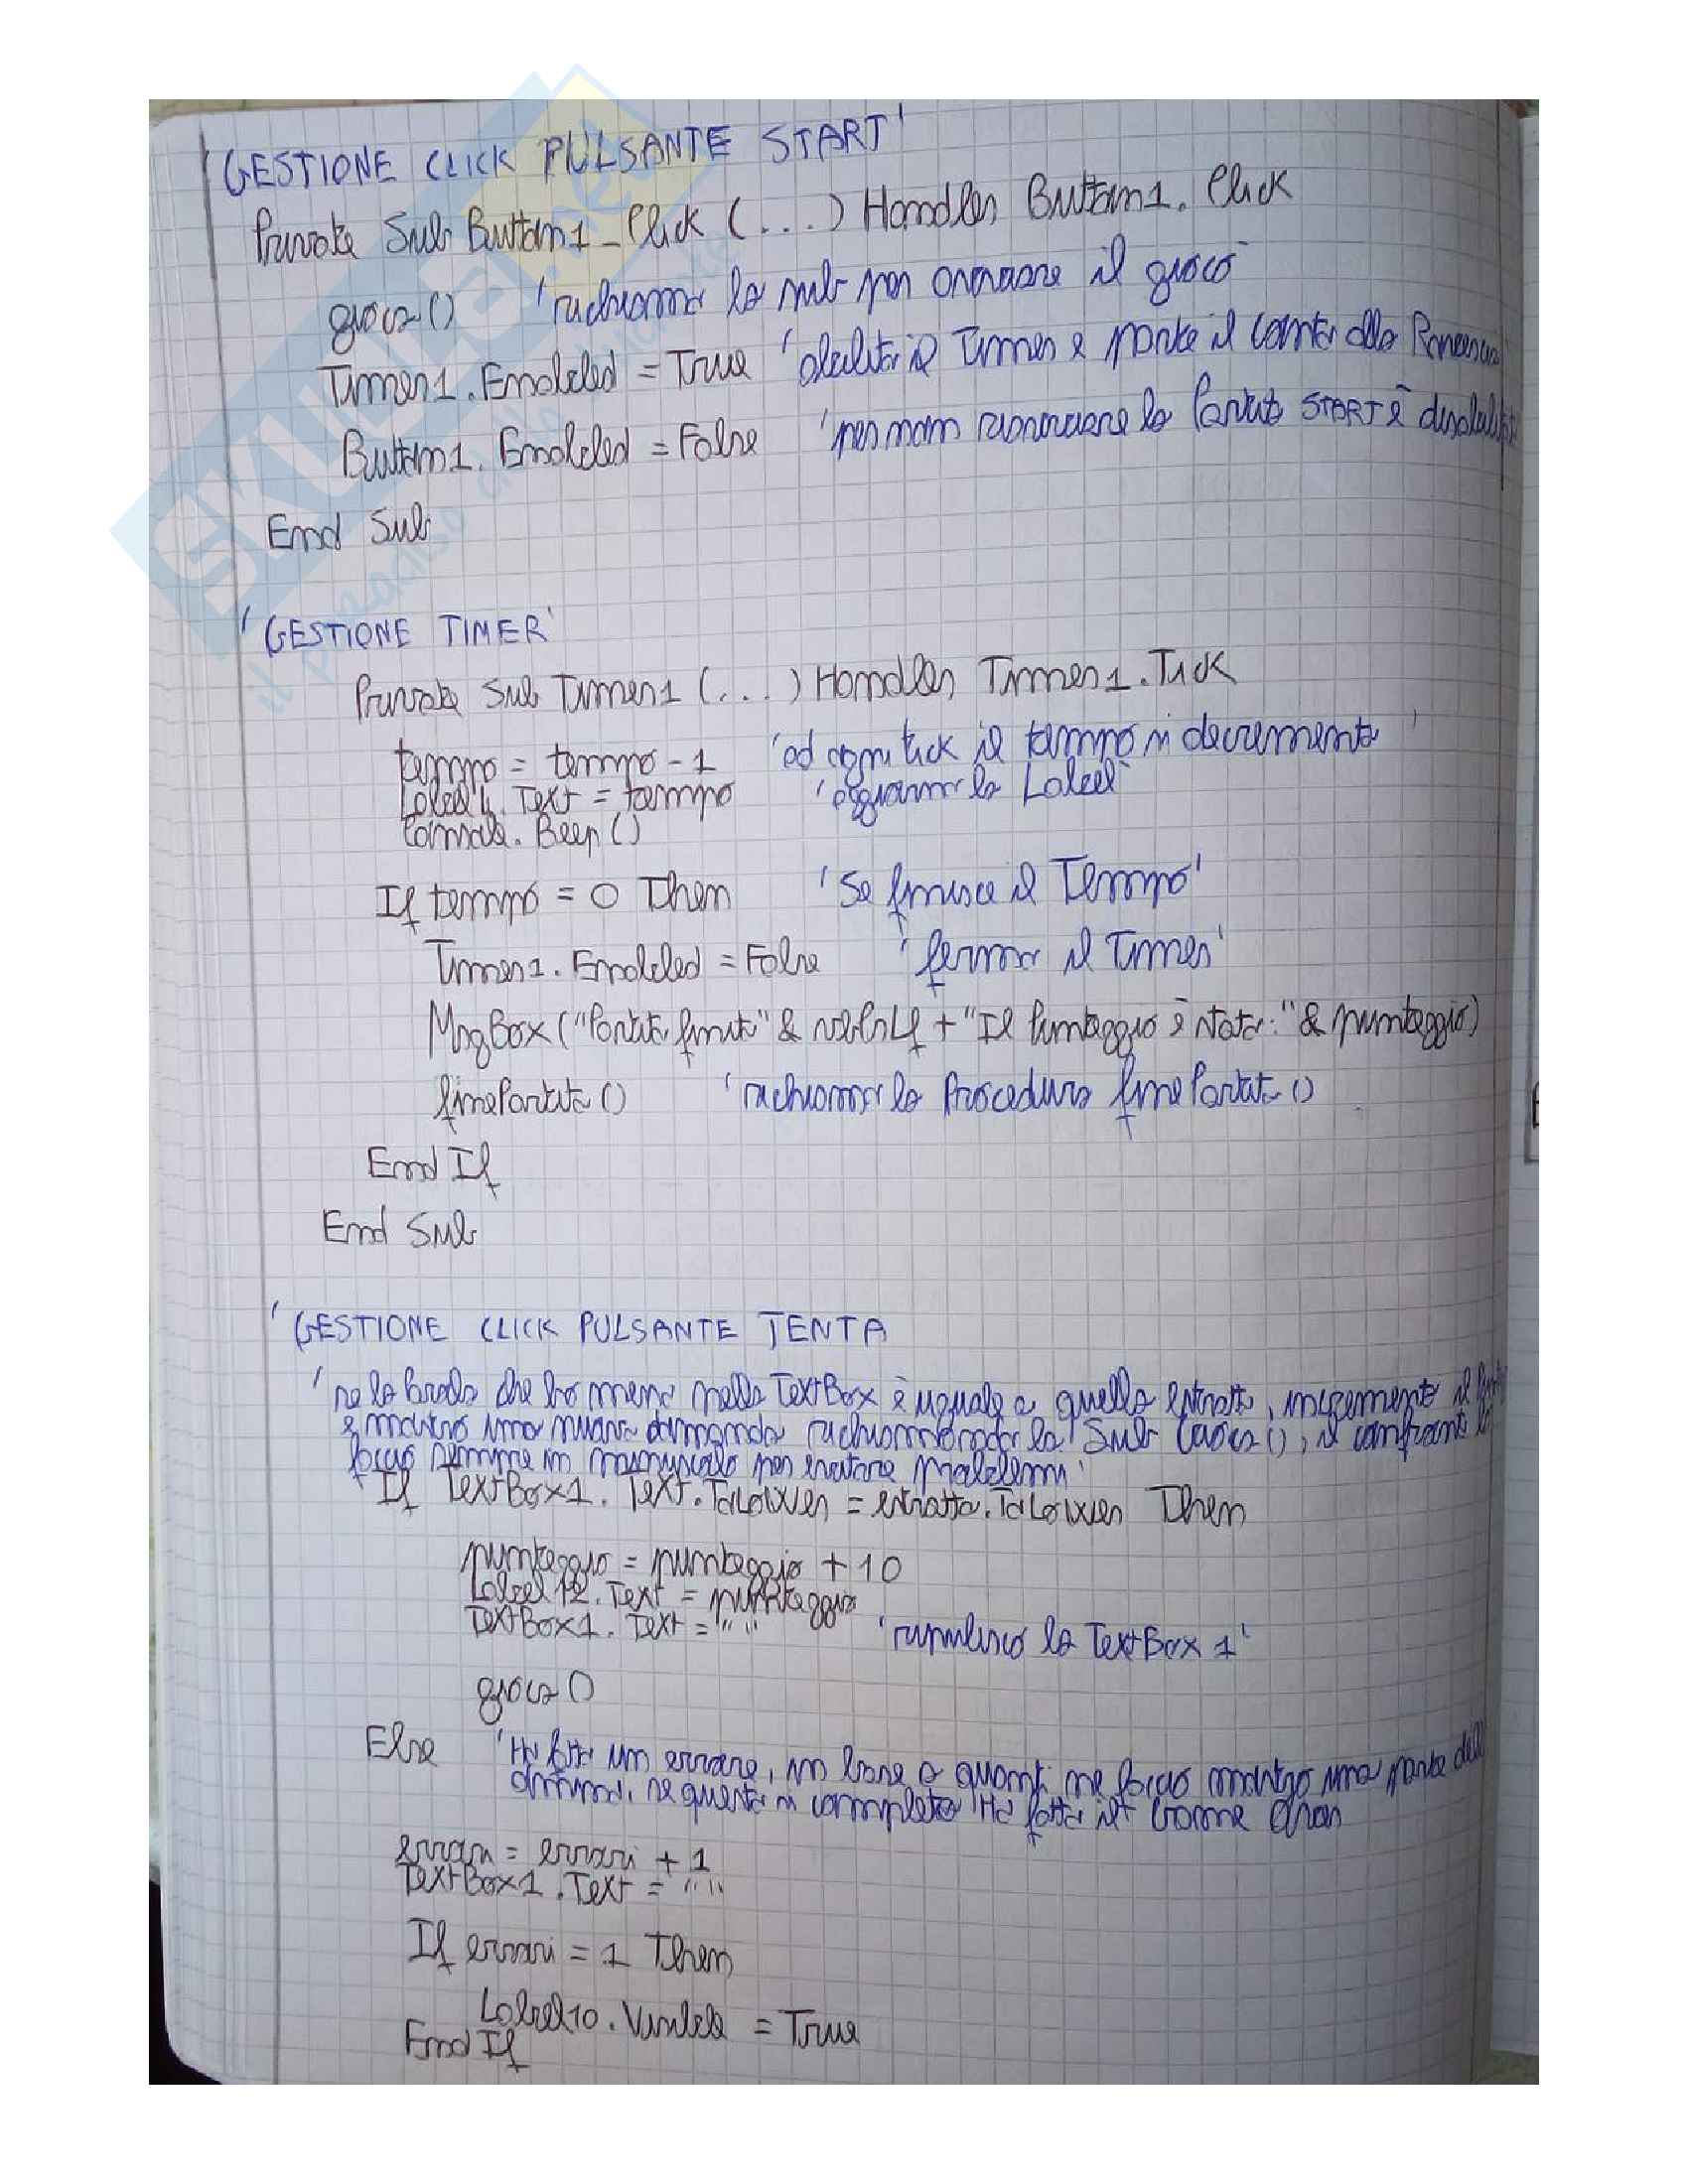 'GESTIONE CLICK PULSANTE START'
Private Sub Button1_Click (...) Handles Button1.Click
gioca() 'richiamo la sub per avviare il gioco
Timer1.Enabled = True 'abilita il Timer e parte il conto alla Rovescia
Button1.Enabled = False 'per non riavviare la partita START è disabilit
End Sub
'GESTIONE TIMER'
Private Sub Timer1 (...) Handles Timer1.Tick
tempo = tempo - 1 'ad ogni tick il tempo si decrementa'
Label4.Text = tempo 'aggiorno la Label
Console.Beep()
If tempo = 0 Then 'Se finisce il Tempo'
Timer1.Enabled = False 'ferma il Timer'
MsgBox ("Partita finita" & vbCrLf + "Il Punteggio è stato:" & punteggio)
finePartita() 'richiamo la Procedura finePartita()
End If
End Sub
'GESTIONE CLICK PULSANTE TENTA
'se la parola che ho messo nella TextBox è uguale a quella estratta, incremento il
e mostro una nuova domanda richiamando la Sub Gioca(), il confronto lo
faccio sempre in minuscolo per evitare problemi'
If TextBox1.Text.ToLower = estratta.ToLower Then
punteggio = punteggio + 10
Label12.Text = punteggio
TextBox1.Text = "" 'ripulisco la TextBox 1'
gioca()
Else 'Ha fatto un errore, in base a quanti ne faccio mostro una parte dell
omino, se questo si completa Ha fatto il Game Over
errori = errori + 1
TextBox1.Text = ""
If errori = 1 Then
Label10.Visible = True
End If
SKUOLA.net
il paradiso dello studente